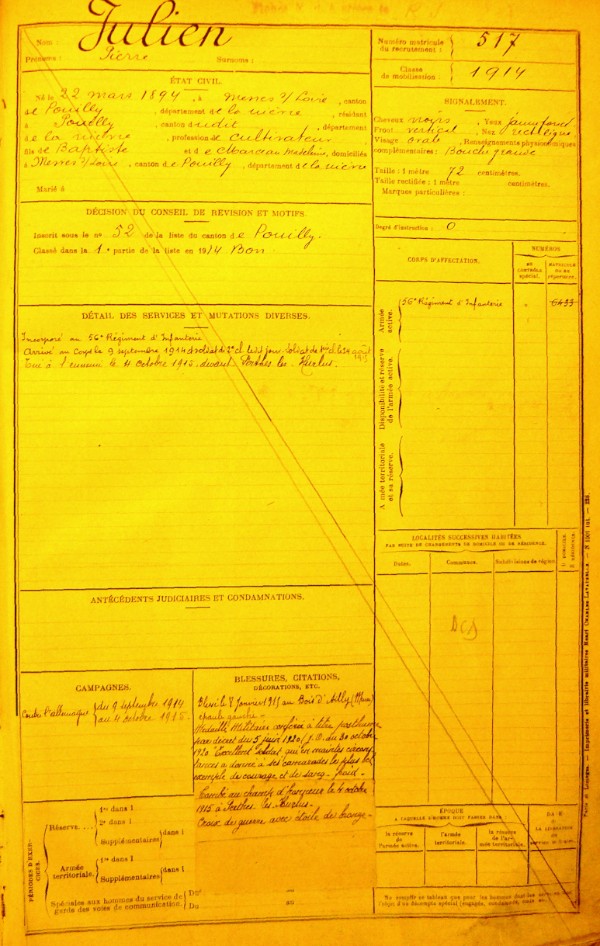 Nom :
Julien
Prénoms : Pierre Surnoms :
Numéro matricule
du recrutement : 517
Classe
de mobilisation : 1914
ÉTAT CIVIL.
Né le 22 mars 1894, à Mesves s/ Loire, canton
de Pouilly, département de la nièvre, résidant
à Pouilly, canton dudit, département
de la nièvre, profession de Cultivateur
fils de Baptiste et de domiciliés
à Mesves s/ Loire, canton de Pouilly, département de la nièvre
Marié à
SIGNALEMENT.
Cheveux noirs, Yeux
Front vertical, Nez rectiligne
Visage ovale, Renseignements physionomiques
complémentaires : Bouche grande
Taille : 1 mètre 72 centimètres.
Taille rectifiée : 1 mètre centimètres.
Marques particulières :
Degré d'instruction : 0
DÉCISION DU CONSEIL DE RÉVISION ET MOTIFS.
Inscrit sous le no 52 de la liste du canton de Pouilly.
Classé dans la 1e partie de la liste en 1914 Bon
CORPS D'AFFECTATION.
NUMÉROS
AU
CONTRÔLE
SPÉCIAL.
MATRICULE
OU AU
RÉPERTOIRE.
Armée
active.
56e Régiment d'Infanterie
6433
Disponibilité et réserve
de l'armée active.
Armée territoriale
et sa réserve.
DÉTAIL DES SERVICES ET MUTATIONS DIVERSES.
Incorporé au 56e Régiment d'Infanterie
Arrivé au Corps le 9 septembre 1914 et soldat de 2e cl. ledit jour. Soldat de 1ère cl. le août
Tué à l'ennemi le 4 octobre 1915 devant les Hurlus.
LOCALITÉS SUCCESSIVES HABITÉES
PAR SUITE DE CHANGEMENTS DE DOMICILE OU DE RÉSIDENCE.
Dates.
Communes.
Subdivisions de région.
D. DOMICILE.
R. RÉSIDENCE.
DCD
ANTÉCÉDENTS JUDICIAIRES ET CONDAMNATIONS.
CAMPAGNES.
Contre l'allemagne du 9 septembre 1914
au 4 octobre 1915.
BLESSURES, CITATIONS,
DÉCORATIONS, ETC.
Blessé le 8 Janvier 1915 au Bois d'Ailly (Meuse)
épaule gauche.
Médaille Militaire conférée à titre posthume
par décret du 5 juin 1920 (J.O. du 30 octobre
1920 "Excellent Soldat qui en maintes circons
tances a donné à ses camarades le plus bel
exemple de courage et de sang-froid.
Tombé au champ d'honneur le 4 octobre
1915 à les Hurlus.
Croix de guerre avec étoile de bronze.
PÉRIODES D'EXERCICES.
Réserve.
1re dans l
2e dans l
Supplémentaires dans l
Armée
territoriale.
1re dans l
Supplémentaires dans l
Spéciales aux hommes du service de
garde des voies de communication.
Du
Du au
ÉPOQUE
À LAQUELLE L'HOMME DOIT PASSER DANS
la réserve
de l'armée active.
l'armée
territoriale.
la réserve
de l'ar-
mée territoriale.
DATE
DE
LA LIBÉRATION
DU SERVICE MILITAIRE.
Paris et Limoges. — Imprimerie et librairie militaires Henri CHARLES-LAVAUZELLE.